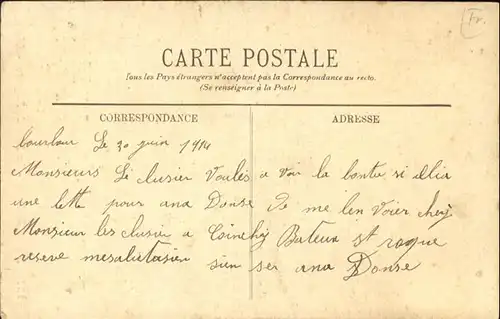 Fr.
CARTE POSTALE
Tous les Pays étrangers n'acceptent pas la Correspondance au recto.
(Se renseigner à la Poste)
CORRESPONDANCE
ADRESSE
Le 30 juin 1914
Monsieurs Lé clusier voulés a voir la bonte si illia
une lette pour ana Danse de me len voier cheij
Monsieur les clusier a Bateux st roque
reseve mes alutasien sien ser ana Danse